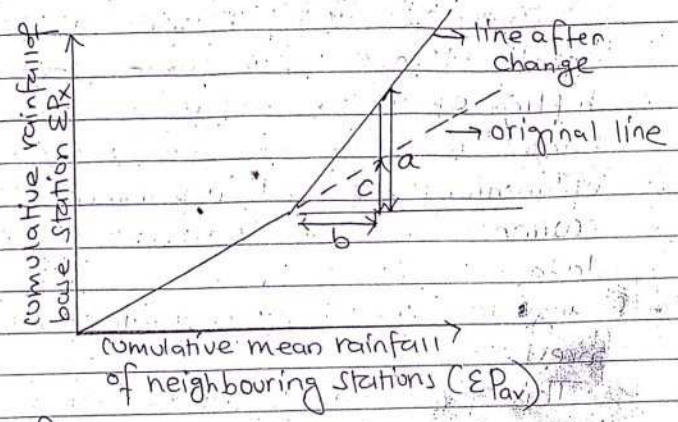 cumulative rainfall of
base station ΣPx
line after
change
original line
a
c
b
cumulative mean rainfall
of neighbouring stations (ΣPav)